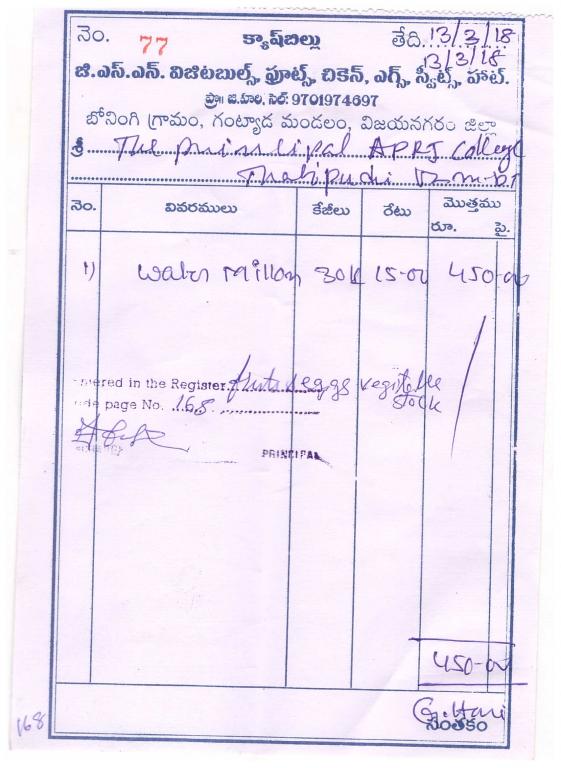 నెం. 77 క్యాష్‌బిల్లు తేది. 13/3/18
13/3/18
జి.ఎస్.ఎన్. విజిటబుల్స్, ఫ్రూట్స్, చికెన్, ఎగ్స్, స్వీట్స్, హాట్.
ప్రొ॥ జి.హరి, సెల్: 9701974697
బోనింగి గ్రామం, గంట్యాడ మండలం, విజయనగరం జిల్లా
శ్రీ The principal APRJ College
Thatipudi
నెం. వివరములు కేజీలు రేటు మొత్తము
రూ. పై.
1) water Millon 30k 15-00 450-00
ntered in the Register. fruts eggs vegitable
stock
de page No. 168
PRINCIPAL
450-00
G. Hari
సంతకం
168